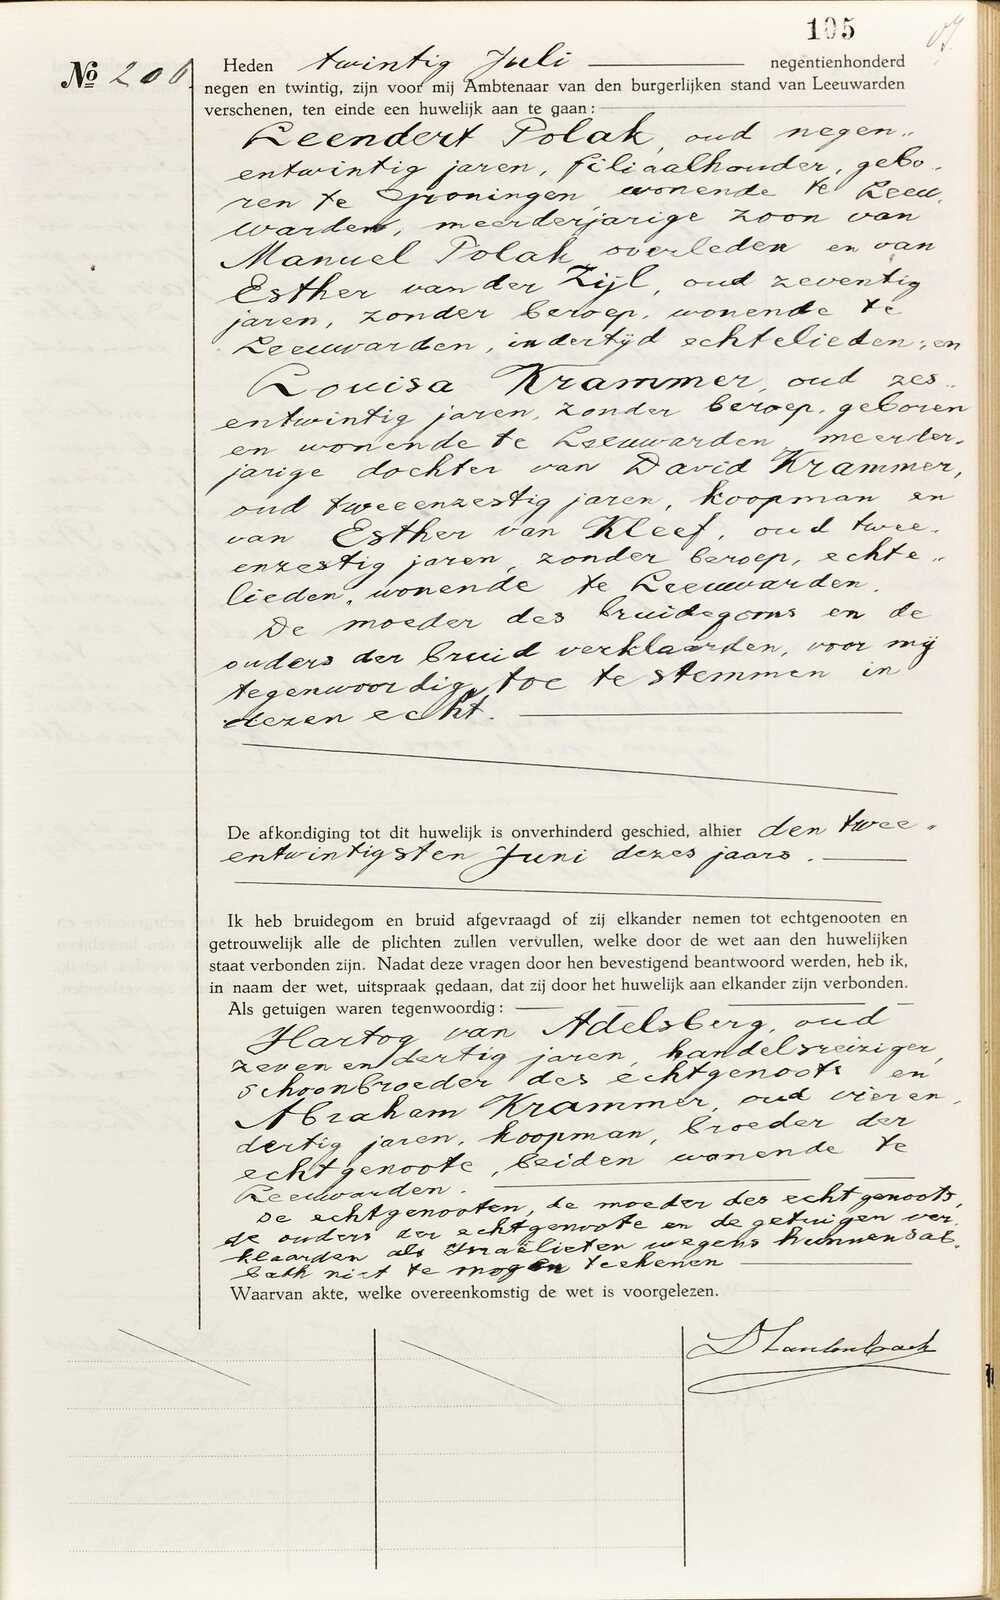 105
No 206
Heden twintig Juli negentienhonderd
negen en twintig, zijn voor mij Ambtenaar van den burgerlijken stand van Leeuwarden
verschenen, ten einde een huwelijk aan te gaan:
Leendert Polak, oud negen„
entwintig jaren, filiaalhouder, gebo„
ren te Groningen wonende te Leeu„
warden, meerderjarige zoon van
Manuel Polak overleden en van
Esther van der Zijl, oud zeventig
jaren, zonder beroep, wonende te
Leeuwarden, indertijd echtelieden; en
Louisa Krammer, oud zes„
entwintig jaren, zonder beroep, geboren
en wonende te Leeuwarden, meerder„
jarige dochter van David Krammer,
oud tweeenzestig jaren, koopman en
van Esther van Kleef, oud twee„
enzestig jaren, zonder beroep, echte„
lieden, wonende te Leeuwarden.
De moeder des bruidegoms en de
ouders der bruid verklaarden, voor mij
tegenwoordig, toe te stemmen in
dezen echt.
De afkondiging tot dit huwelijk is onverhinderd geschied, alhier den twee„
entwintigsten Juni dezes jaars.
Ik heb bruidegom en bruid afgevraagd of zij elkander nemen tot echtgenooten en
getrouwelijk alle de plichten zullen vervullen, welke door de wet aan den huwelijken
staat verbonden zijn. Nadat deze vragen door hen bevestigend beantwoord werden, heb ik,
in naam der wet, uitspraak gedaan, dat zij door het huwelijk aan elkander zijn verbonden.
Als getuigen waren tegenwoordig:
Hartog van Adelsberg, oud
zevenendertig jaren, handelsreiziger,
schoonbroeder des echtgenoots en
Abraham Krammer, oud vieren„
dertig jaren, koopman, broeder der
echtgenoote, beiden wonende te
Leeuwarden.
De echtgenooten, de moeder des echtgenoots,
de ouders der echtgenoote en de getuigen ver„
klaarden als Israëlieten wegens hunnen Sab„
bath niet te mogen teekenen
Waarvan akte, welke overeenkomstig de wet is voorgelezen.